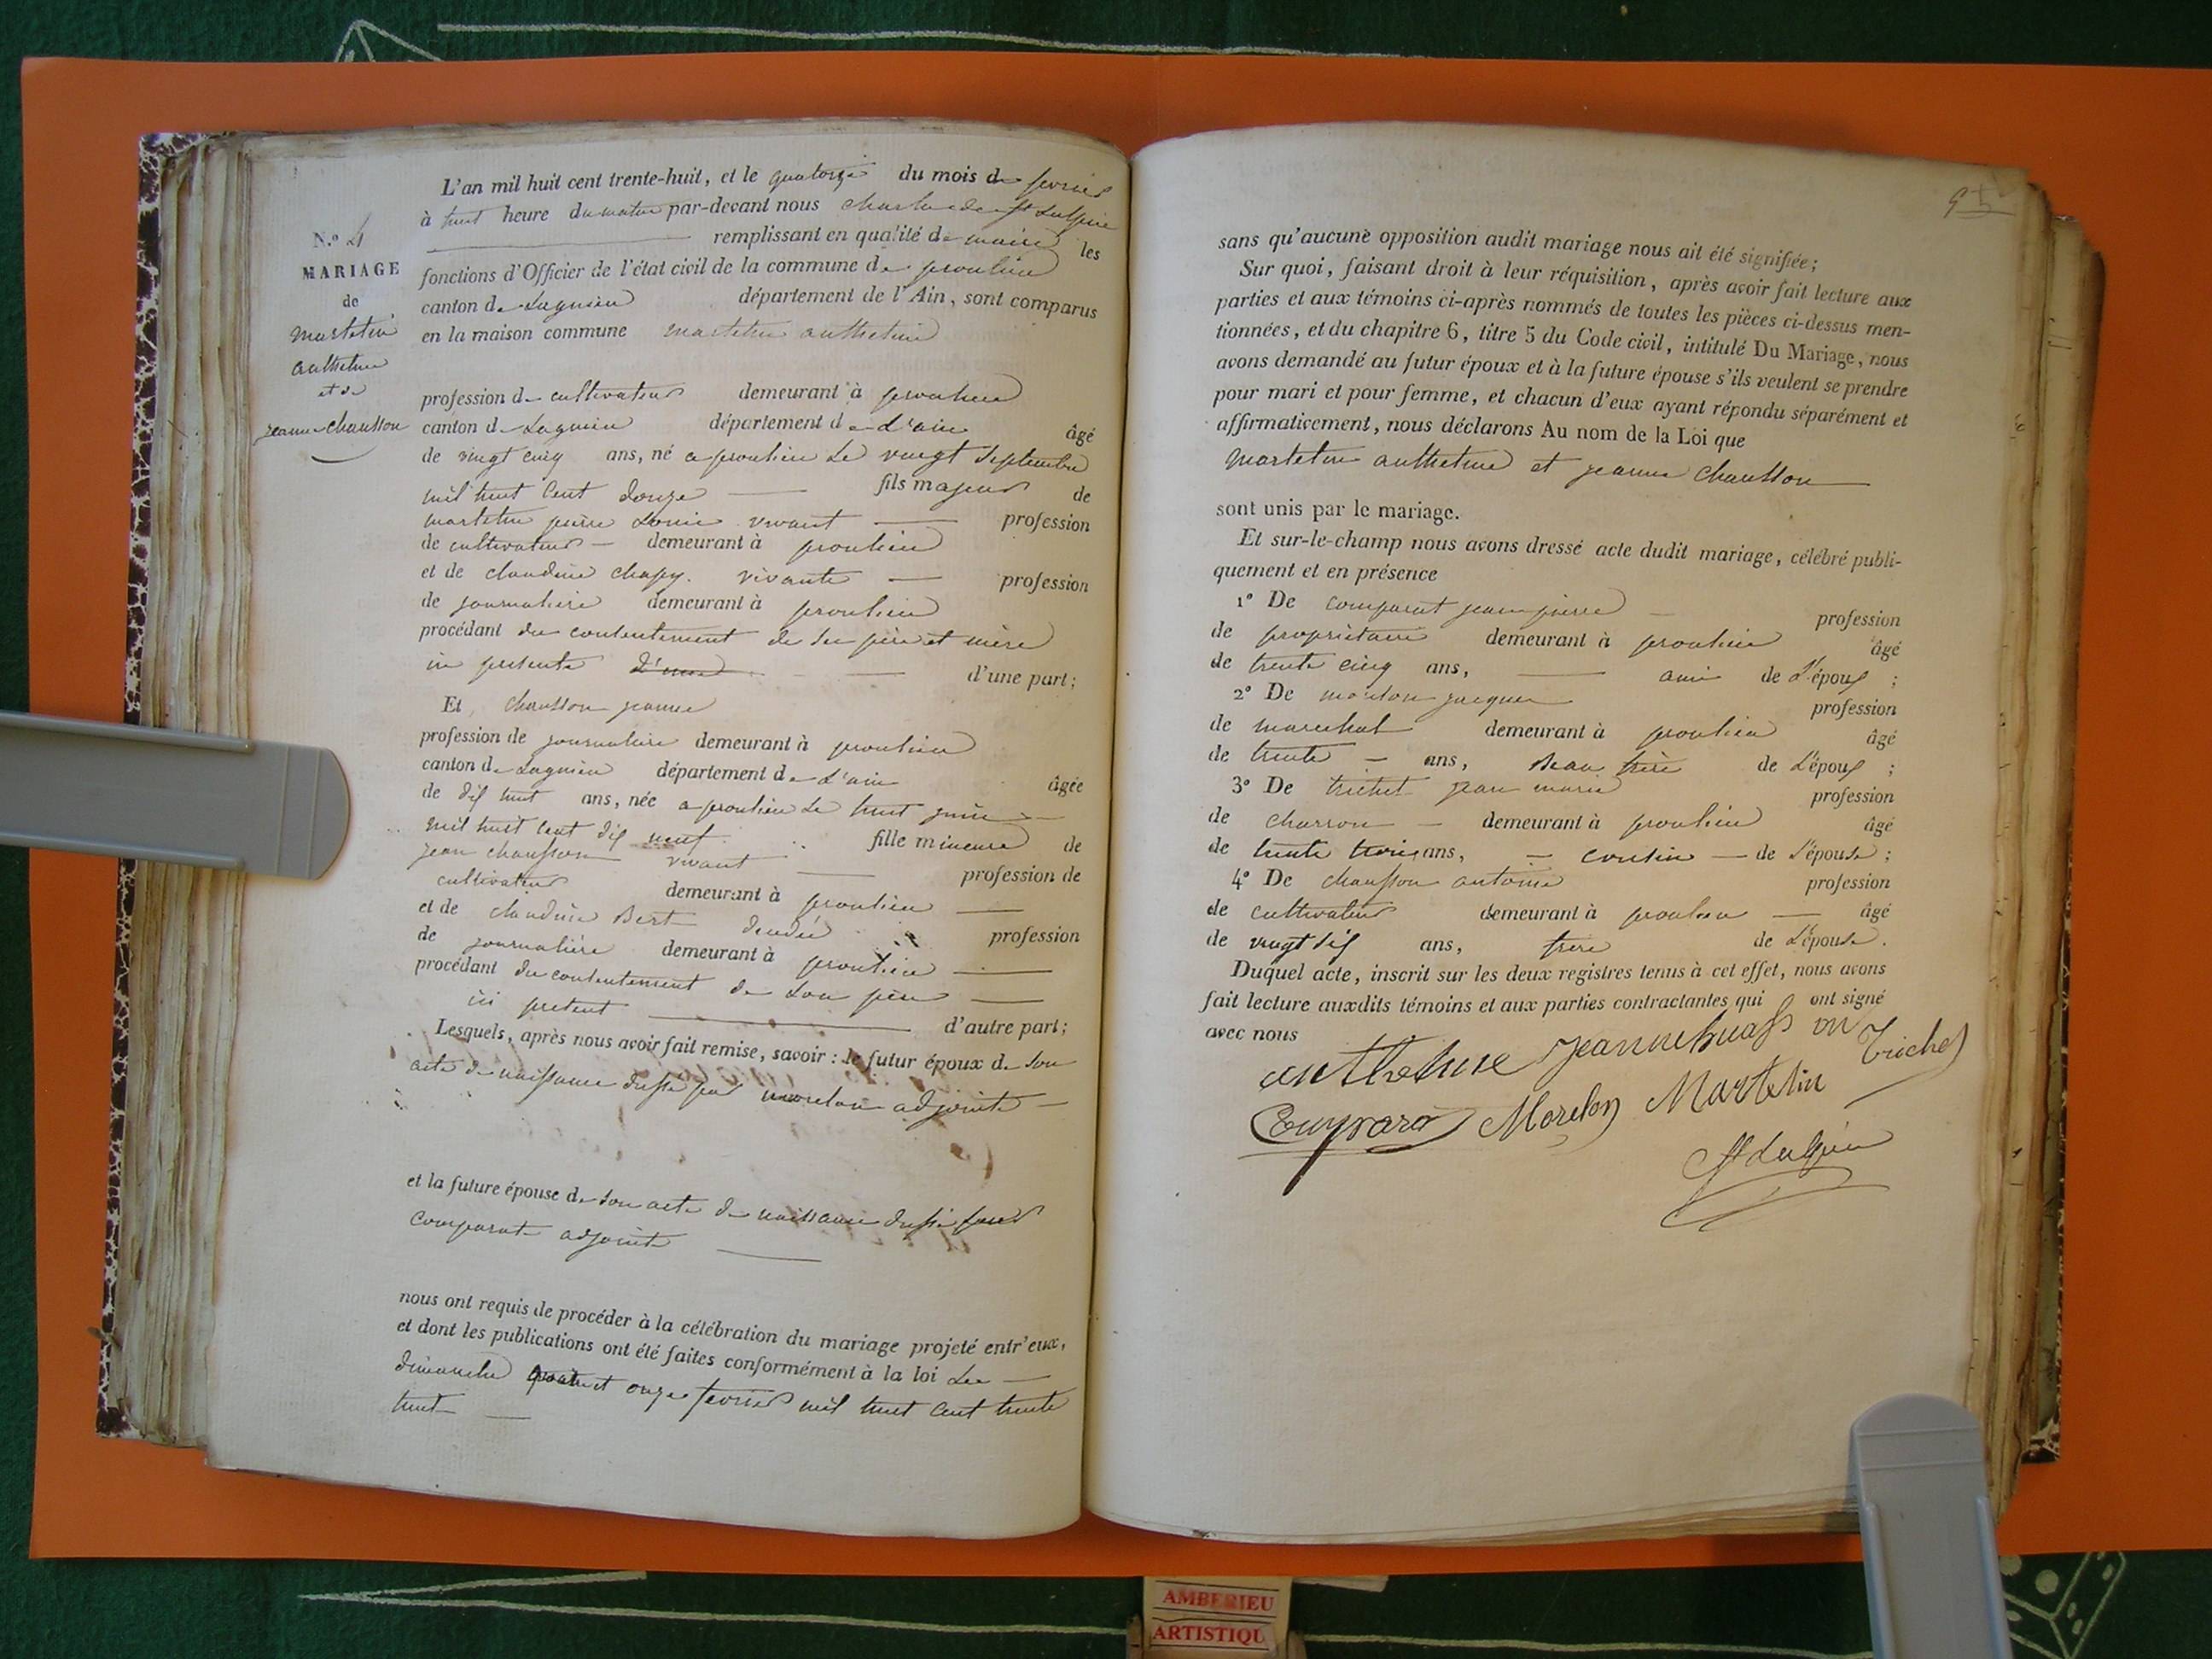 L'an mil huit cent trente-huit, et le quatorze du mois de fevrier
à huit heure du matin par-devant nous de St Sulpice
remplissant en qualité de maire les
N.º 4
MARIAGE
de
Martetin
anthelme
et de
jeanne Chausson
fonctions d'Officier de l'état civil de la commune de proulieu
canton de Lagnieu département de l'Ain, sont comparus
en la maison commune martetin anthelme
profession de cultivateur demeurant à proulieu
canton de Lagnieu département de L'ain âgé
de vingt cinq ans, né a proulieu Le vingt Septembre
mil huit Cent douze fils majeur de
martetin pierre Louis vivant profession
de cultivateur demeurant à proulieu
et de claudine chapuy. vivante profession
de journaliere demeurant à proulieu
procédant du contentement de ses père et mère
ici presents d'une part;
Et Chausson jeanne
profession de journaliere demeurant à proulieu
canton de Lagnieu département de L'ain âgée
de dix huit ans, née a proulieu Le huit juin
mil huit Cent dix neuf fille mineure de
jean chausson vivant profession de
cultivateur demeurant à proulieu
et de claudine Bert profession
de journalière demeurant à proulieu
procédant du contentement de Son père
ici present d'autre part;
Lesquels, après nous avoir fait remise, savoir : le futur époux de Son
acte de naissance dressé par morelon adjoint
et la future épouse de Son acte de naissance dressé par
comparat adjoint
nous ont requis de procéder à la célébration du mariage projeté entr'eux,
et dont les publications ont été faites conformément à la loi Les
dimanche quatre et onze fevrier mil huit Cent trente
huit
sans qu'aucune opposition audit mariage nous ait été signifiée;
Sur quoi, faisant droit à leur réquisition, après avoir fait lecture aux
parties et aux témoins ci-après nommés de toutes les pièces ci-dessus men-
tionnées, et du chapitre 6, titre 5 du Code civil, intitulé Du Mariage, nous
avons demandé au futur époux et à la future épouse s'ils veulent se prendre
pour mari et pour femme, et chacun d'eux ayant répondu séparément et
affirmativement, nous déclarons Au nom de la Loi que
Martetin anthelme et jeanne Chausson
sont unis par le mariage.
Et sur-le-champ nous avons dressé acte dudit mariage, célébré publi-
quement et en présence
1º De comparat jean pierre profession
de propriétaire demeurant à proulieu âgé
de trente cinq ans, ami de L'époux ;
2º De morelon jacques profession
de marechal demeurant à proulieu âgé
de trente ans, Beau frère de L'époux ;
3º De trichet jean marie profession
de charron demeurant à proulieu âgé
de trente trois ans, cousin de L'épouse ;
4º De chausson antoine profession
de cultivateur demeurant à proulieu âgé
de vingt six ans, frere de L'épouse.
Duquel acte, inscrit sur les deux registres tenus à cet effet, nous avons
fait lecture auxdits témoins et aux parties contractantes qui ont signé
avec nous
anthelme Trichet
Morelon Martetin
St Sulpice
AMBERIEU
ARTISTIQU